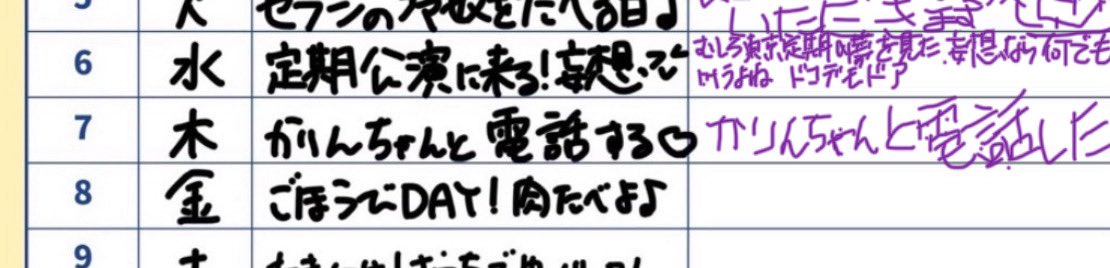 セブンの冷奴をたべる日♪
いただきます
6 水 定期公演に来る!妄想って むしろ東京定期の夢を見た、妄想なら何でも
叶うよね ドコデモドア
7 木 かりんちゃんと電話する♡ かりんちゃんと電話した
8 金 ごほうびDAY!肉たべよ♪
9 土